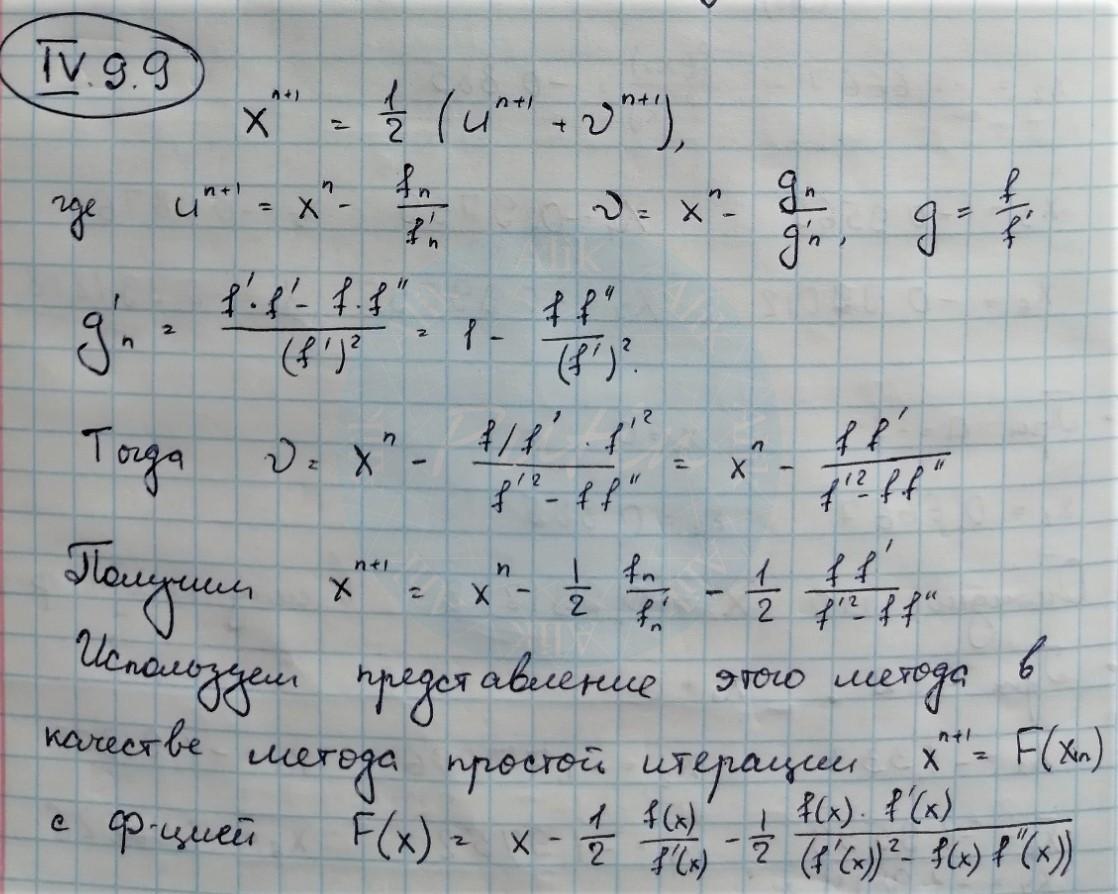 IV.9.9
x^{n+1} = 1/2 (u^{n+1} + v^{n+1}),
где u^{n+1} = x^n - f_n/f'_n v = x^n - g_n/g'_n, g = f/f'
g'_n = (f'·f' - f·f'')/(f')^2 = 1 - f f''/(f')^2.
Тогда v = x^n - (f/f' · f'^2)/(f'^2 - f f'') = x^n - f f'/(f'^2 - f f'')
Получим x^{n+1} = x^n - 1/2 f_n/f'_n - 1/2 f f'/(f'^2 - f f'')
Используем представление этого метода в
качестве метода простой итерации x^{n+1} = F(x_n)
с ф-цией F(x) = x - 1/2 f(x)/f'(x) - 1/2 f(x)·f'(x)/((f'(x))^2 - f(x) f''(x))